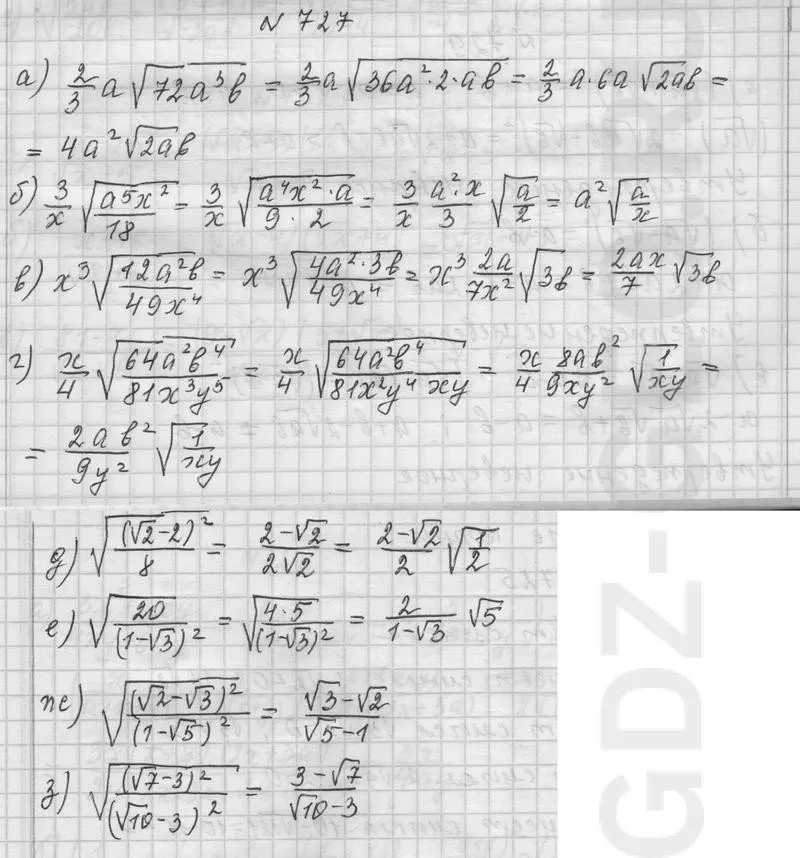 N 727
а) 2/3 a √(72a³b) = 2/3 a √(36a²·2·ab) = 2/3 a·6a √(2ab) =
= 4a² √(2ab)
б) 3/x √(a⁵x²/18) = 3/x √(a⁴x²·a/(9·2)) = 3/x a²·x/3 √(a/2) = a² √(a/x)
в) x³ √(12a²b/49x⁴) = x³ √(4a²·3b/49x⁴) = x³ 2a/7x² √(3b) = 2ax/7 √(3b)
г) x/4 √(64a²b⁴/81x³y⁵) = x/4 √(64a²b⁴/81x²y⁴xy) = x/4 8ab²/9xy² √(1/xy) =
= 2ab²/9y² √(1/xy)
д) √((√2-2)²/8) = 2-√2/2√2 = 2-√2/2 √(1/2)
е) √(20/(1-√3)²) = √(4·5/(1-√3)²) = 2/1-√3 √5
ж) √((√2-√3)²/(1-√5)²) = √3-√2/√5-1
з) √((√7-3)²/(√10-3)²) = 3-√7/√10-3
GDZ-